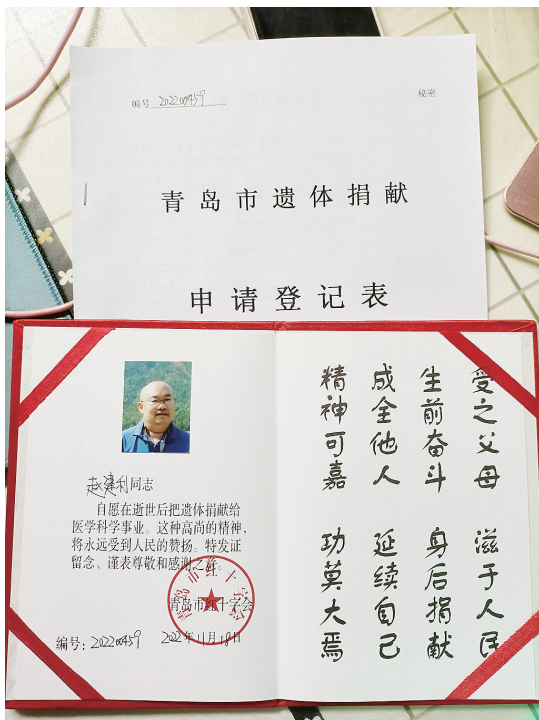 编号 202200459
秘密
青岛市遗体捐献
申请登记表
赵建利同志
自愿在逝世后把遗体捐献给
医学科学事业。这种高尚的精神，
将永远受到人民的赞扬。特发证
留念、谨表尊敬和感谢之意。
青岛市红十字会
青岛市红十字会
编号：202200459
2022年11月18日
受之父母 滋于人民
生前奋斗 身后捐献
成全他人 延续自己
精神可嘉 功莫大焉